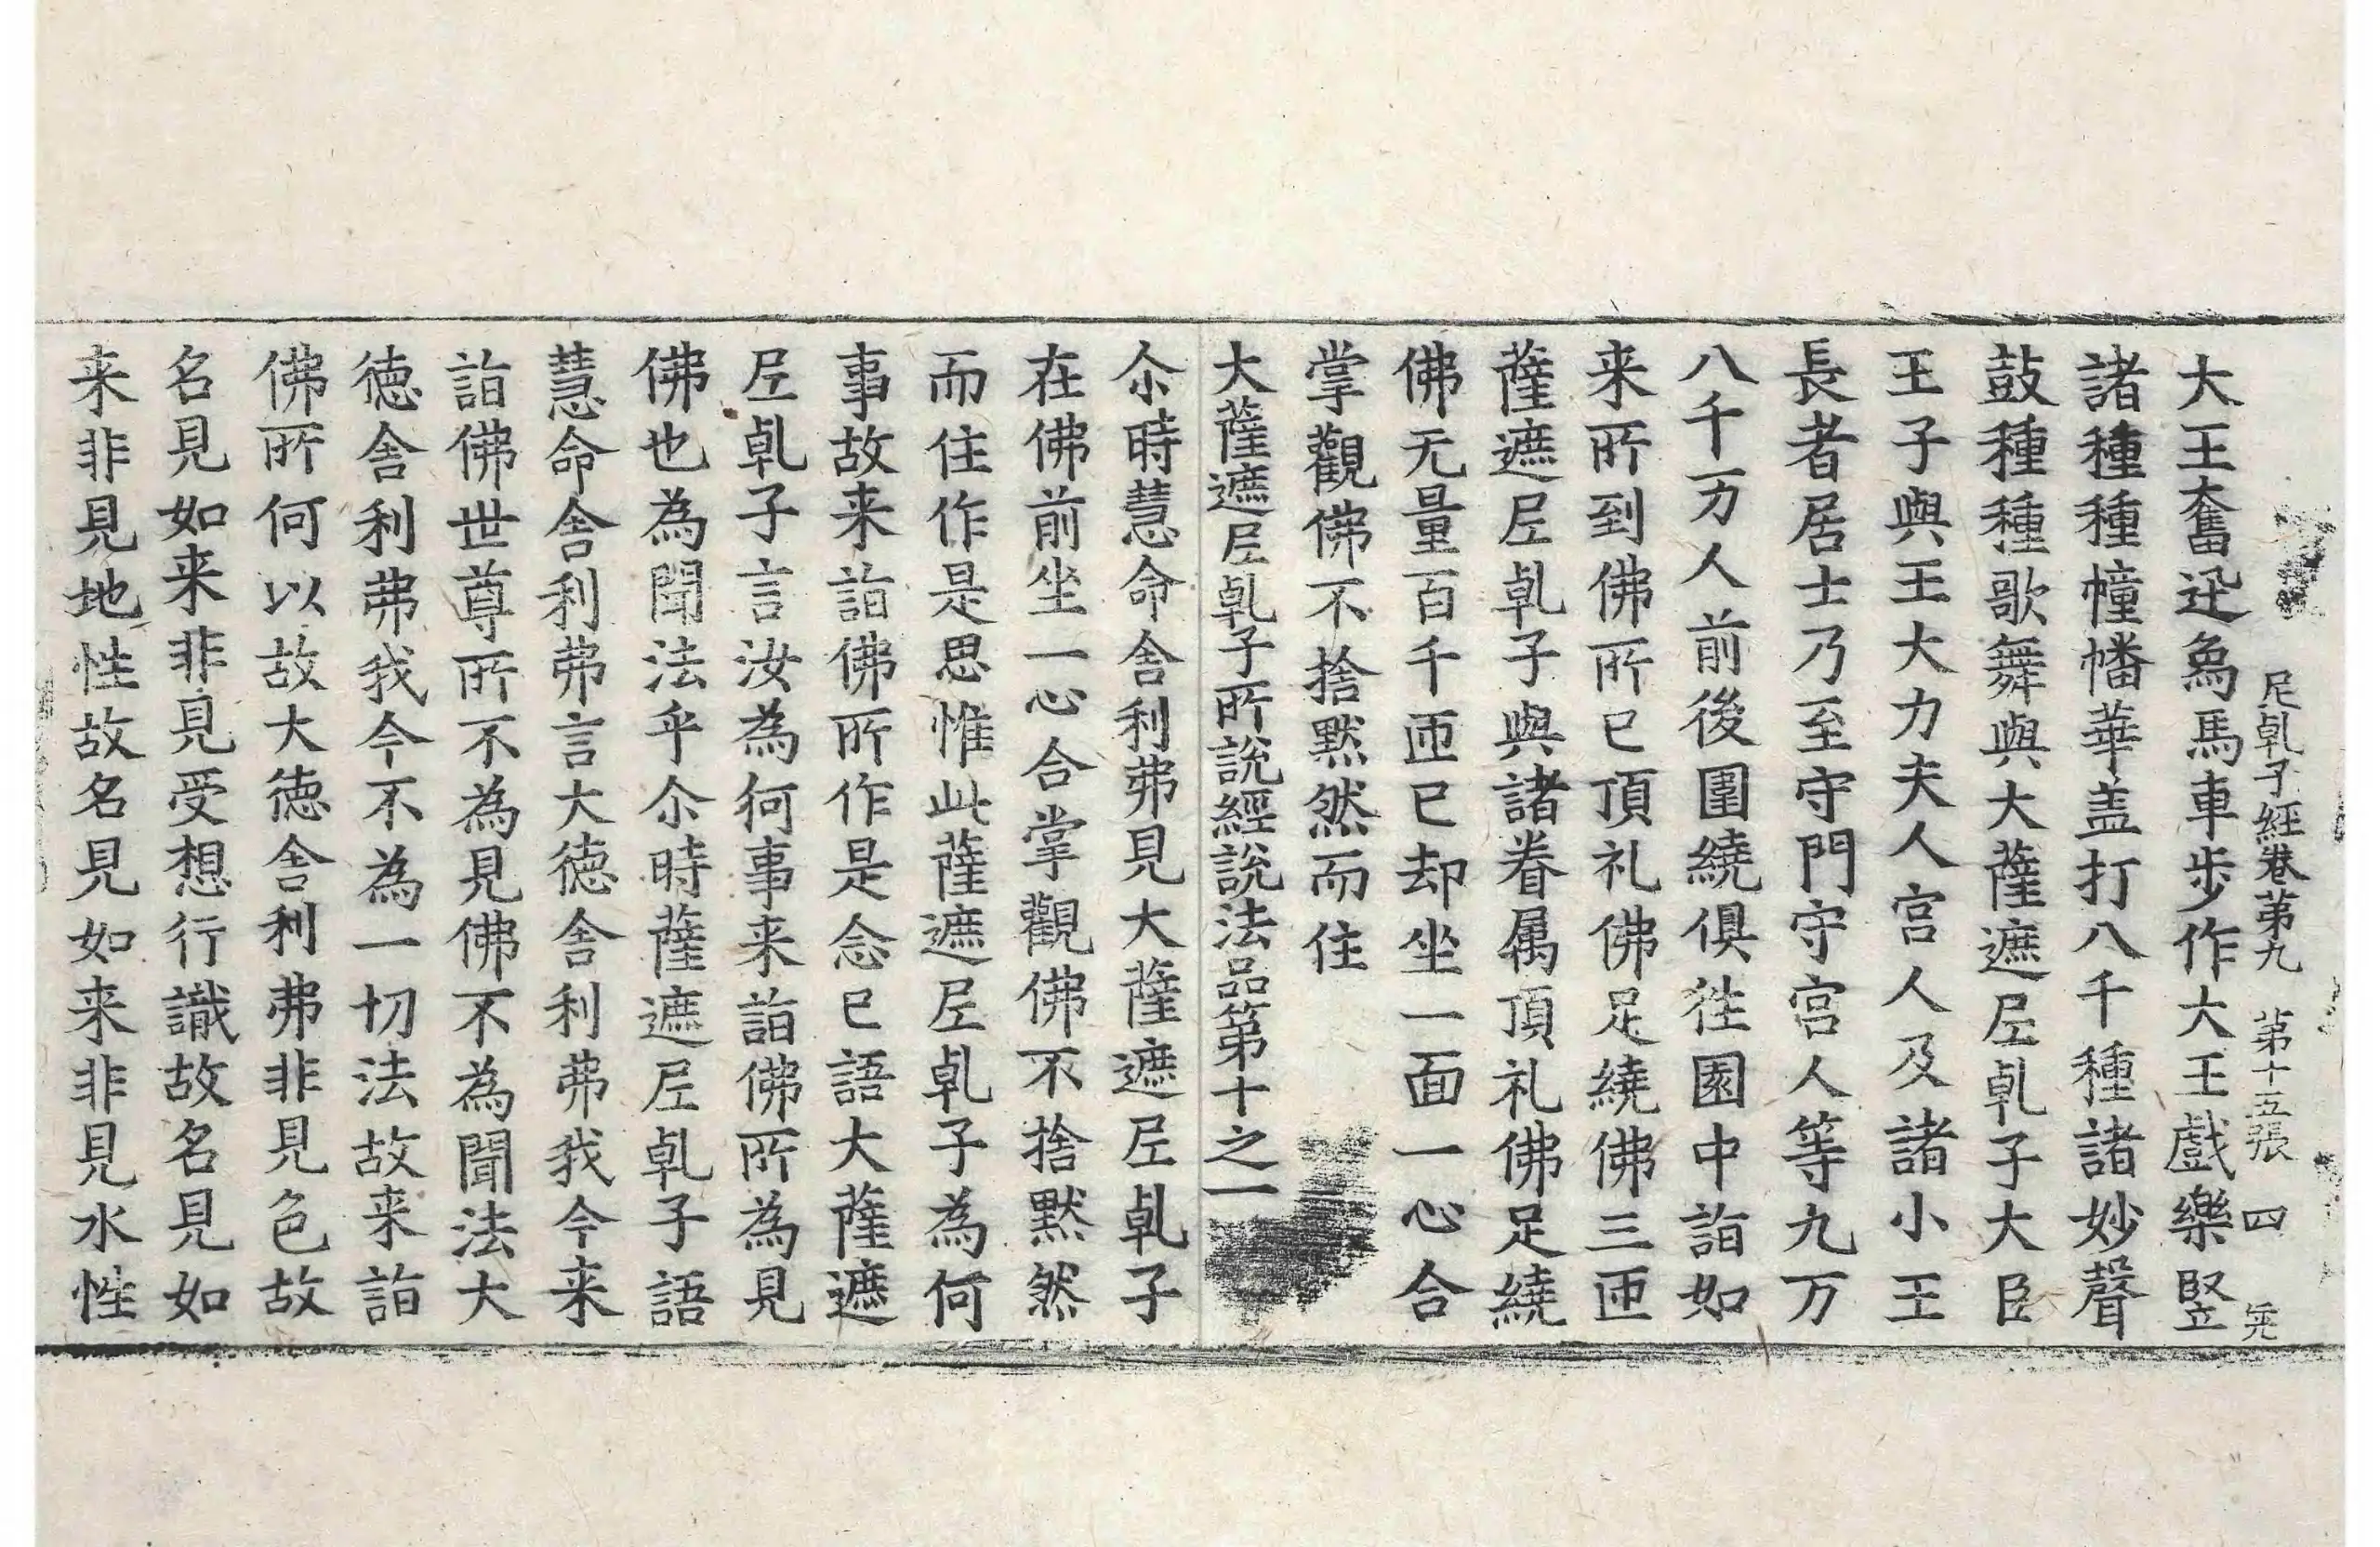 尼乹子經卷第九　第十五張　四
大王奮迅鳥馬車步作大王戲樂竪
諸種種幢幡華盖打八千種諸妙聲
鼓種種歌舞與大薩遮𡰱乹子大臣
王子與王大力夫人宫人及諸小王
長者居士乃至守門守宫人等九万
八千万人前後圍繞俱徃園中詣如
来所到佛所已頂礼佛足繞佛三匝
薩遮𡰱乹子與諸眷属頂礼佛足繞
佛无量百千匝已却坐一面一心合
掌觀佛不捨默然而住
大薩遮𡰱乹子所說經說法品第十之一
尒時慧命舍利弗見大薩遮𡰱乹子
在佛前坐一心合掌觀佛不捨默然
而住作是思惟此薩遮𡰱乹子為何
事故来詣佛所作是念已語大薩遮
𡰱乹子言汝為何事来詣佛所為見
佛也為聞法乎尒時薩遮𡰱乹子語
慧命舍利弗言大德舍利弗我今来
詣佛世尊所不為見佛不為聞法大
德舍利弗我今不為一切法故来詣
佛所何以故大德舍利弗非見色故
名見如来非見受想行識故名見如
来非見地性故名見如来非見水性